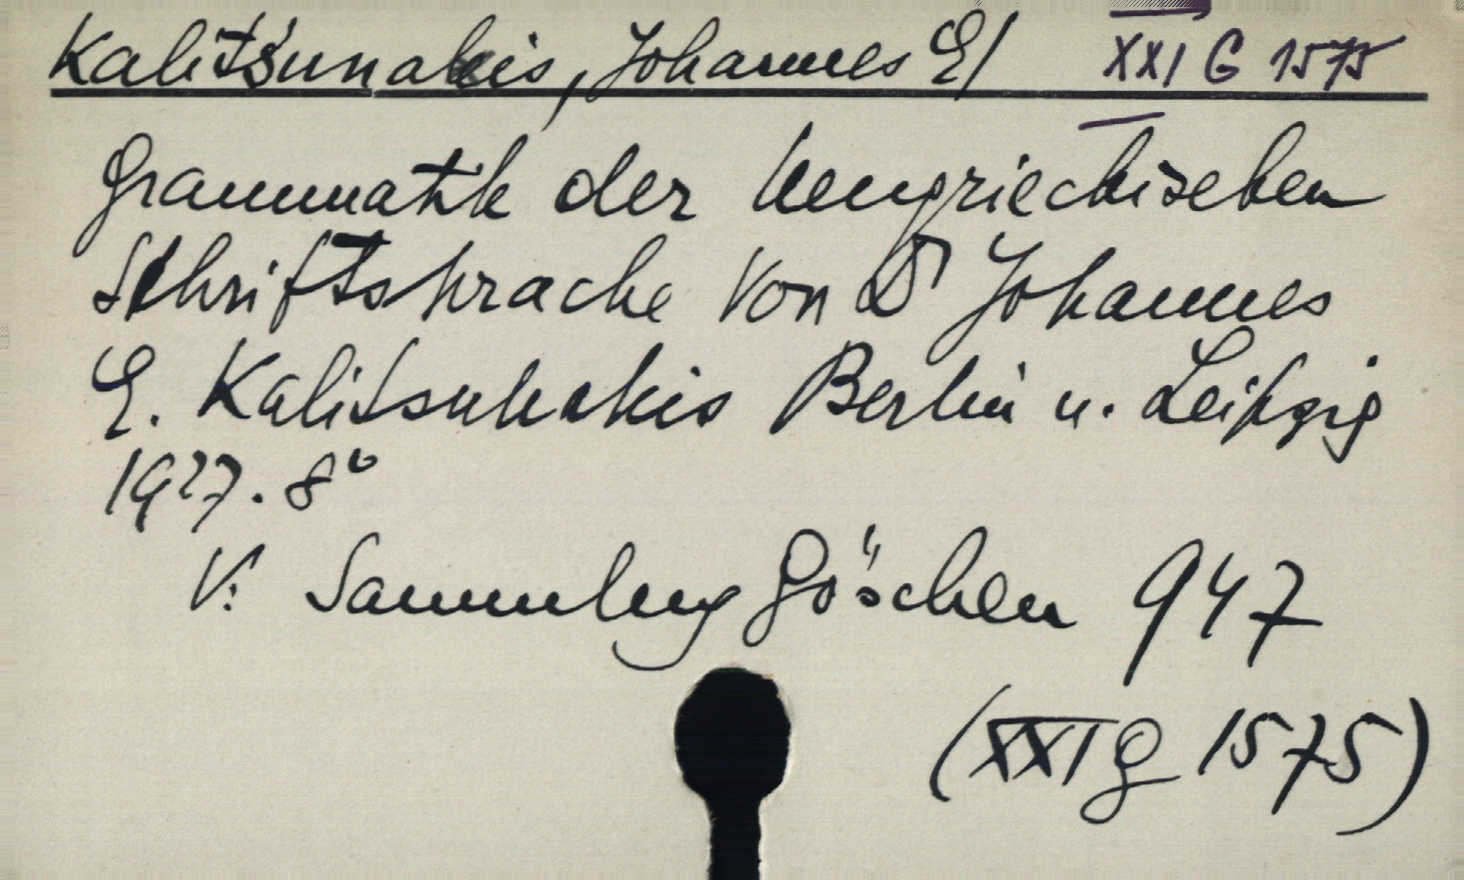 Kalitsunakis, Johannes E/ XXI G 1575
Grammatik der Neugriechischen
Schriftsprache von Dr Johannes
E. Kalitsunakis Berlin u. Leipzig
1927. 8°
V: Sammlung Göschen 947
(XXI G 1575)